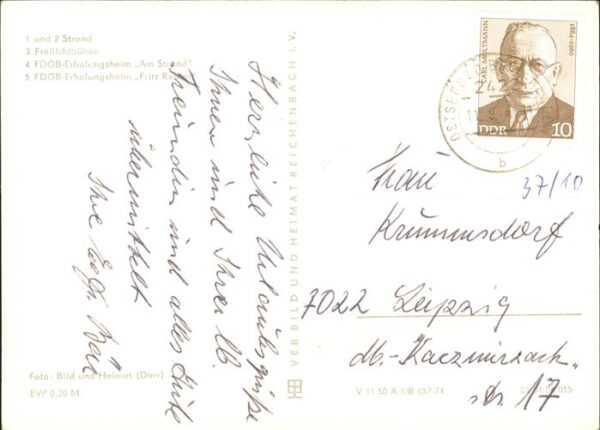 1 und 2 Strand
3 Freilichtbühne
4 FDGB-Erholungsheim „Am Strand"
5 FDGB-Erholungsheim „Fritz
Herzliche Urlaubsgrüße
Ihnen und Ihrer lb.
Freundin und alles Gute
übermittelt
Ihre
Foto: Bild und Heimat (Darr)
EVP 0,20 M
VEB BILD UND HEIMAT REICHENBACH i. V.
V 11 50 A 1/B 657/74
CARL MOLTMANN
1884-1960
DDR 10
OSTSEEBAD
242
b
37/10
Frau
Krummsdorf
7022 Leipzig
str. 17